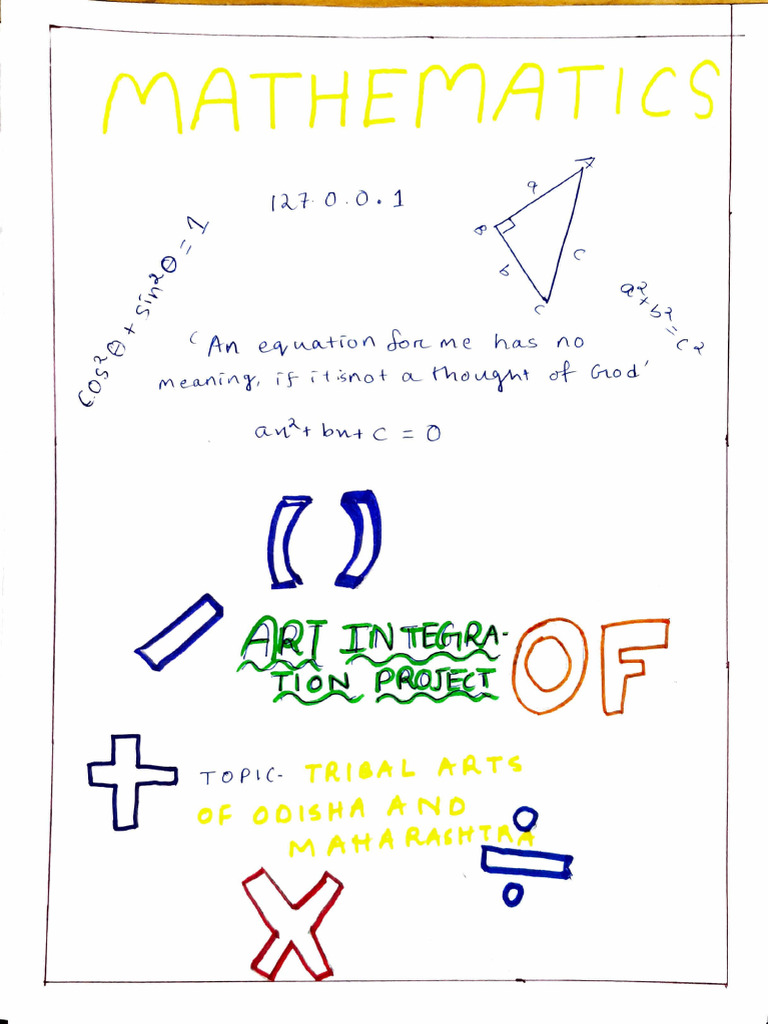 MATHEMATICS
127.0.0.1
A
a
B
c
b
C
cos²θ + sin²θ = 1
a² + b² = c²
'An equation for me has no
meaning, if it is not a thought of God'
ax² + bx + c = 0
( )
ART INTEGRA-
TION PROJECT
OF
TOPIC- TRIBAL ARTS
OF ODISHA AND
MAHARASHTRA
+
÷
X